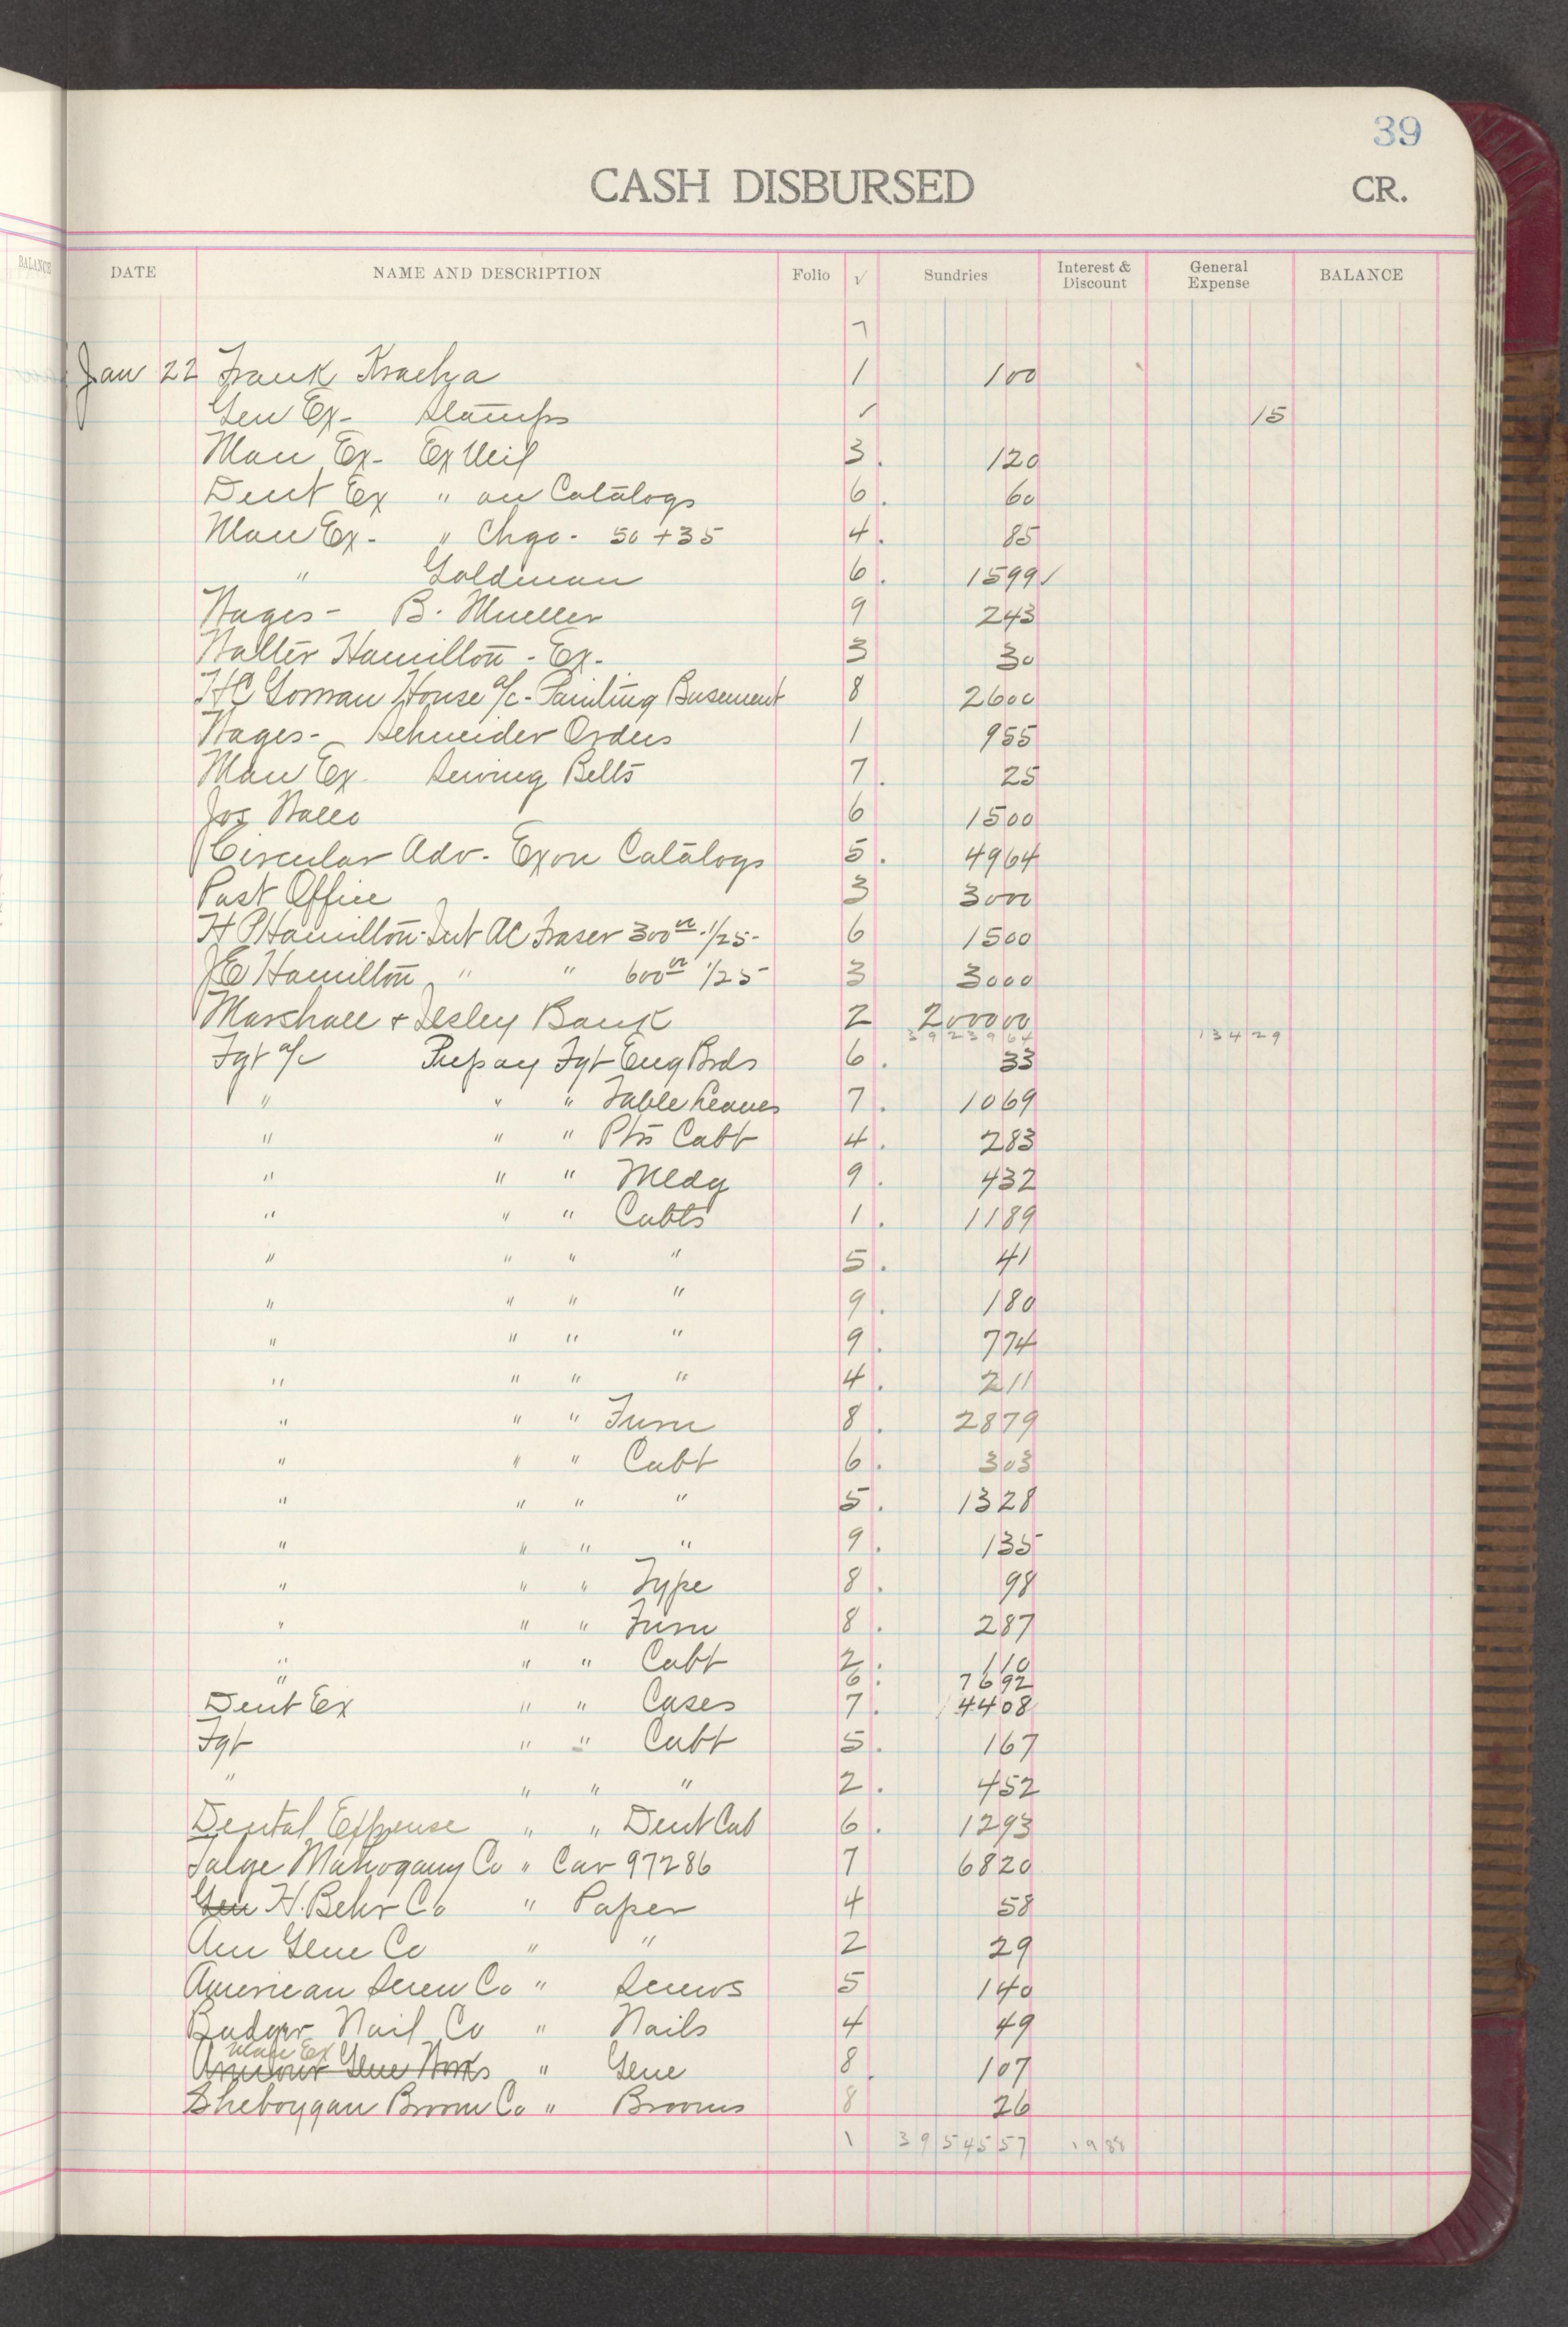 39
CASH DISBURSED CR.
BALANCE DATE NAME AND DESCRIPTION Folio √ Sundries Interest & Discount General Expense BALANCE
7
Jan 22 Frank 1 100
Gen Ex- Stamps ✓ 15
Man Ex- Ex 3. 120
Dent Ex " on Catalogs 6. 60
Man Ex- " Chgo- 50 + 35 4. 85
" Goldman 6. 1599✓
Wages- B. Mueller 9 243
Walter Hamilton - Ex- 3 30
HC Gorman House a/c- Painting Basement 8 2600
Wages- Schneider Orders 1 955
Man Ex. Sewing Belts 7. 25
Jos 6 1500
Circular Adv- Ex on Catalogs 5. 4964
Post Office 3 3000
H P Hamilton- Int AC Fraser 300 00 - 1/25- 6 1500
JE Hamilton " " 600 00 1/25- 3 3000
Marshall & Ilsley Bank 2 200000
3923964 13429
Fgt a/c Prepay Fgt Eng Brds 6. 33
" " " Table Leaves 7. 1069
" " " Pts Cabt 4. 283
" " " Mldg 9. 432
" " " Cabts 1. 1189
" " " " 5. 41
" " " " 9. 180
" " " " 9. 774
" " " " 4. 211
" " " Furn 8. 2879
" " " Cabt 6. 303
" " " " 5. 1328
" " " " 9. 135
" " " Type 8. 98
" " " Furn 8. 287
" " " Cabt 2. 110
" 6. 7692
Dent Ex " " Cases 7. 4408
Fgt " " Cabt 5. 167
" " " " 2. 452
Dental Expense " " Dent Cab 6. 1293
Talge Mahogany Co " Car 97286 7 6820
Gen H. Behr Co " Paper 4 58
Am Glue Co " " 2 29
American Screw Co " Screws 5 140
Badger Nail Co " Nails 4 49
Man Ex
Armour Glue Works " Glue 8. 107
Sheboygan Broom Co " Brooms 8 26
1 3954557 1988